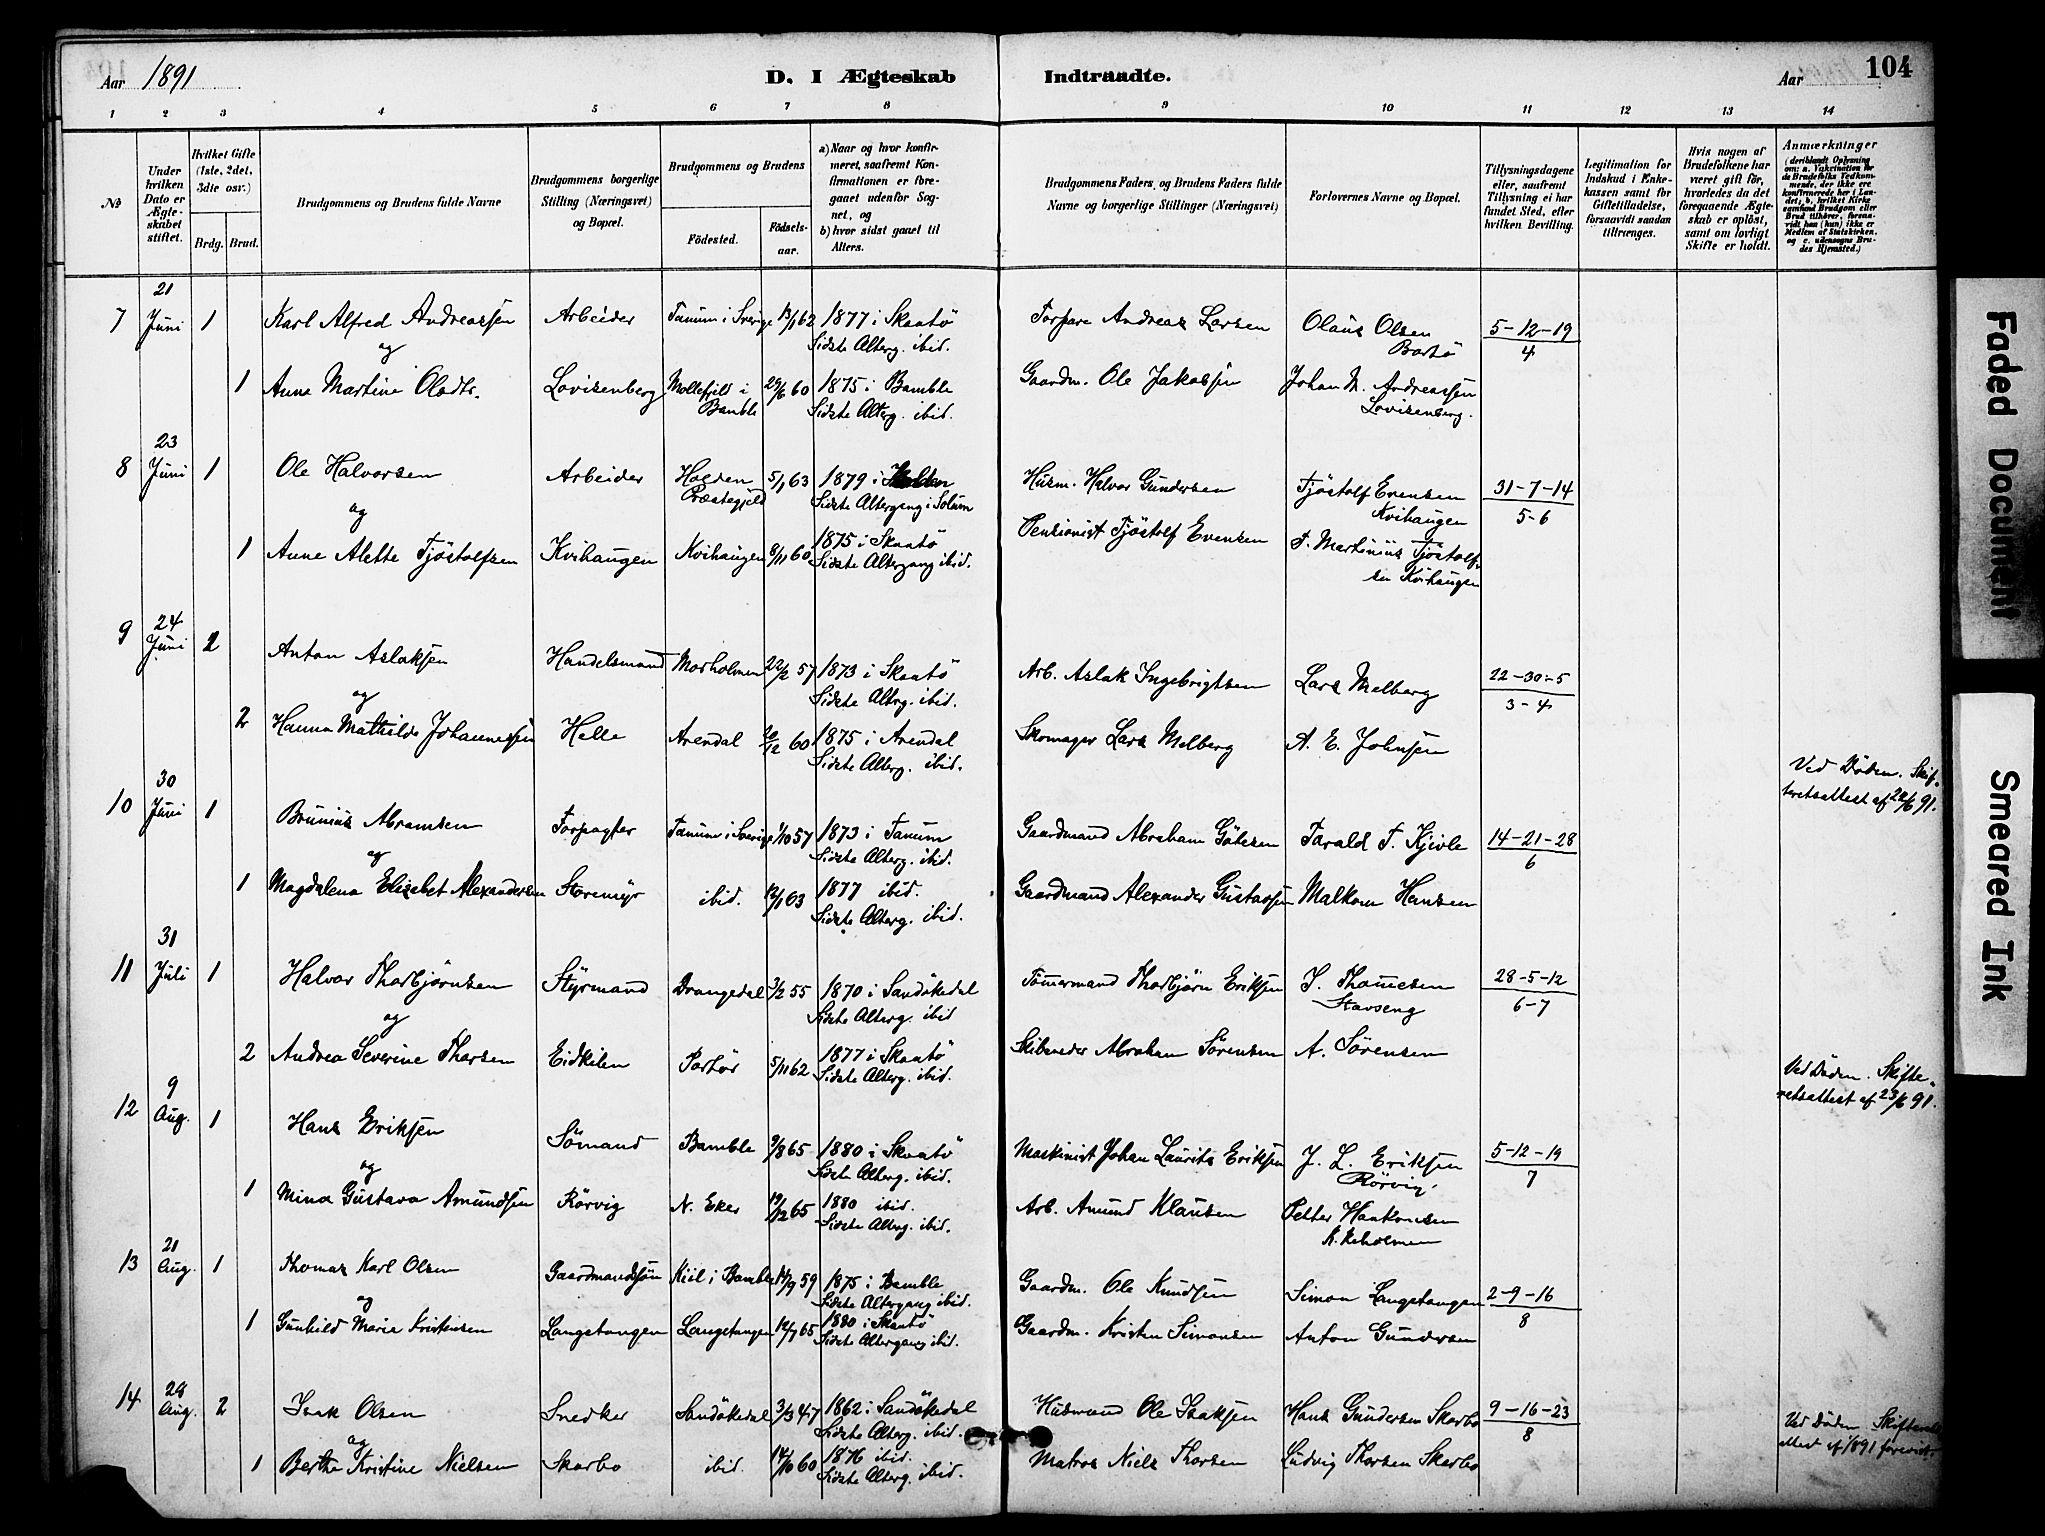 Aar 1891
D. I Ægteskab Indtraadte.
Aar
104
1 2 3 4 5 6 7 8 9 10 11 12 13 14
№
Under hvilken Dato er Ægteskabet stiftet.
Hvilket Gifte (1ste, 2det, 3die osv.)
Brdg. Brud.
Brudgommens og Brudens fulde Navne
Brudgommens borgerlige Stilling (Næringsvei) og Bopæl.
Brudgommens og Brudens
Fødested.
Fødselsaar.
a) Naar og hvor konfirmeret, saafremt Konfirmationen er foregaaet udenfor Sognet, og
b) hvor sidst gaaet til Alters.
Brudgommens Faders, og Brudens Faders fulde Navne og borgerlige Stillinger (Næringsvei)
Forlovernes Navne og Bopæl.
Tillysningsdagene eller, saafremt Tillysning ei har fundet Sted, efter hvilken Bevilling.
Legitimation for Indskud i Enkekassen samt for Giftetilladelse, forsaavidt saadan tiltrænges.
Hvis nogen af Brudefolkene har været gift før, hvorledes da det foregaaende Ægteskab er opløst, samt om lovligt Skifte er holdt.
Anmærkninger
(deriblandt Oplysning om: a. Vakcination for de Brudefolks Vedkommende, der ikke ere konfirmerede her i Landet; b. hvilket Kirkesamfund Brudgom eller Brud tilhører, forsaavidt han (hun) ikke er Medlem af Statskirken, og c. udensogns Brudes Hjemsted.)
7 21 Juni 1 Karl Alfred Andreassen Arbeider Tanum i Sverige 13/1 62 1877 i Skaatö Torpare Andreas Larsen Olaus Olsen 5-12-19
og Sidste Alterg. ibid. Bartö 4
1 Anne Martine Olsdtr. Lovisenberg Mollefjeld i Bamble 29/6 60 1875 i Bamble Gaardm. Ole Jakobsen Johan M. Andreassen
Sidste Alterg. ibid. Lovisenberg.
8 23 Juni 1 Ole Halvorsen Arbeider Holden Præstegjeld 5/1 63 1879 i Holden Husm. Halvor Gundersen Tjöstolf Evensen 31-7-14
og Sidste Altergang i Solum Kvihaugen 5-6
1 Anne Alette Tjöstolfsen Kvihaugen Kvihaugen 8/11 60 1875 i Skaatö Pensionist Tjöstolf Evensen T. Martinius Tjöstolfsen Kvihaugen
Sidste Altergang ibid.
9 24 Juni 2 Anton Aslaksen Handelsmand Morholmen 22/2 57 1873 i Skaatö Arb. Aslak Ingebrigtsen Lars Melberg 22-30-5
og Sidste Altrg. ibid. 3-4
2 Hanna Mathilde Johannessen Helle Arendal 20/12 60 1875 i Arendal Skomager Lars Melberg A. E. Johnsen
Sidste Alterg. ibid.
Ved Döden. Skifteretsattest af 22/6 91.
10 30 Juni 1 Brunius Abramsen Forpagter Tanum i Sverige 1/10 57 1873 i Tanum Gaardmand Abraham Götesen Tarald T. Kjivle 14-21-28
og Sidste Alterg. ibid. 6
1 Magdalena Elisabet Alexandersen Storemyr ibid. 12/1 63 1877 ibid. Gaardmand Alexander Gustavsen Malkom Hansen
Sidste Alterg. ibid.
11 31 Juli 1 Halvor Thorbjörnsen Styrmand Drangedal 3/2 55 1870 i Sandökedal Tömermand Thorbjörn Eriksen J. Thomesen 28-5-12
og Sidste Alterg. ibid Stavseng 6-7
2 Andrea Severine Thorsen Eidkilen Portör 5/11 62 1877 i Skaatö Skibsreder Abraham Sörensen A. Sörensen
Sidste Alterg. ibid.
Ved Döden. Skifteretsattest af 23/6 91.
12 9 Aug. 1 Hans Eriksen Sömand Bamble 9/8 65 1880 i Skaatö Maskinist Johan Laurits Eriksen J. L. Eriksen 5-12-19
og Sidste Alterg. ibid. Rörvig 7
1 Mina Gustava Amundsen Rörvig N. Eker 19/12 65 1880 ibid. Arb. Amund Klausen Petter Haakonsen
Sidste Alterg. ibid.
13 21 Aug. 1 Thomas Karl Olsen Gaardmandssön Kiil i Bamble 14/9 59 1875 i Bamble Gaardm. Ole Knudsen Simon Langetangen 2-9-16
og Sidste Altergang ibid. 8
1 Gunhild Maria Kristensen Langetangen Langetangen 12/7 65 1880 i Skaatö Gaardm. Kristen Simonsen Anton Gundersen
Sidste Altergang ibid.
14 28 Aug. 2 Isak Olsen Snedker Sandökedal 3/3 47 1862 i Sandökedal Husmand Ole Isaksen Hans Gundersen Skarbo 9-16-23
og Sidste Alterg. ibid. 8
1 Berthe Kristine Nielsen Skarbo ibid. 14/10 60 1876 ibid. Matros Niels Thorsen Ludvig Thorsen Skarbo
Sidste Alterg. ibid.
Ved Döden
Faded Document
Smeared Ink